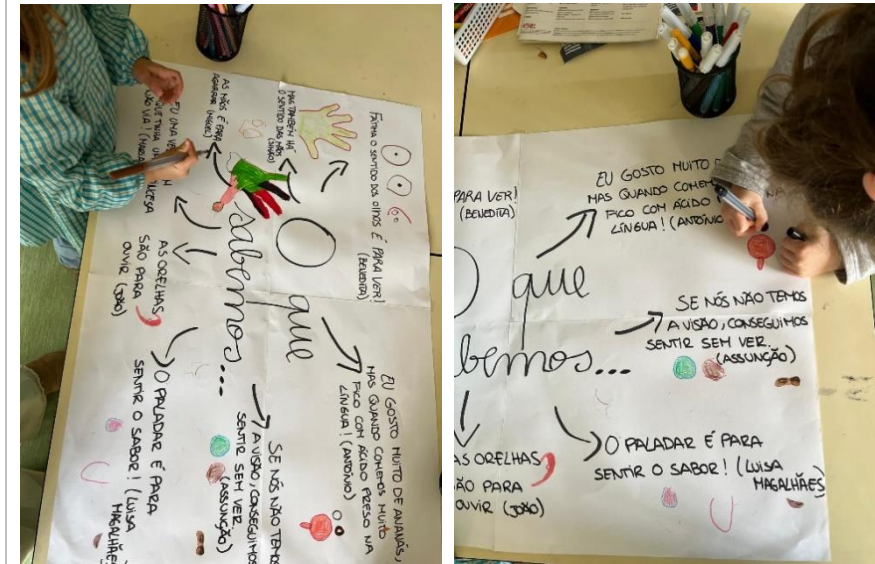 O que
sabemos...
FÁTIMA O SENTIDO DOS OLHOS É PARA VER!
(BENEDITA)
MAS TAMBÉM HÁ
O SENTIDO DAS MÃOS
(SIMÃO)
AS MÃOS É PARA
AGARRAR (MIGUEL)
EU UMA
QUE TINHA
NÃO VIA!
AS ORELHAS
SÃO PARA
OUVIR (JOÃO)
O PALADAR É PARA
SENTIR O SABOR! (LUISA
MAGALHÃES)
SE NÓS NÃO TEMOS
A VISÃO, CONSEGUIMOS
SENTIR SEM VER.
(ASSUNÇÃO)
EU GOSTO MUITO DE ANANÁS,
MAS QUANDO COMEMOS MUITO
FICO COM ÁCIDO PRESO NA
LÍNGUA! (ANTÓNIO)
PARA VER!
(BENEDITA)
EU GOSTO MUITO
MAS QUANDO COMEMOS
FICO COM ÁCIDO NA
LÍNGUA! (ANTÓNIO)
O que
bemos...
SE NÓS NÃO TEMOS
A VISÃO, CONSEGUIMOS
SENTIR SEM VER.
(ASSUNÇÃO)
AS ORELHAS
ÃO PARA
OUVIR (JOÃO)
O PALADAR É PARA
SENTIR O SABOR! (LUISA
MAGALHÃES)